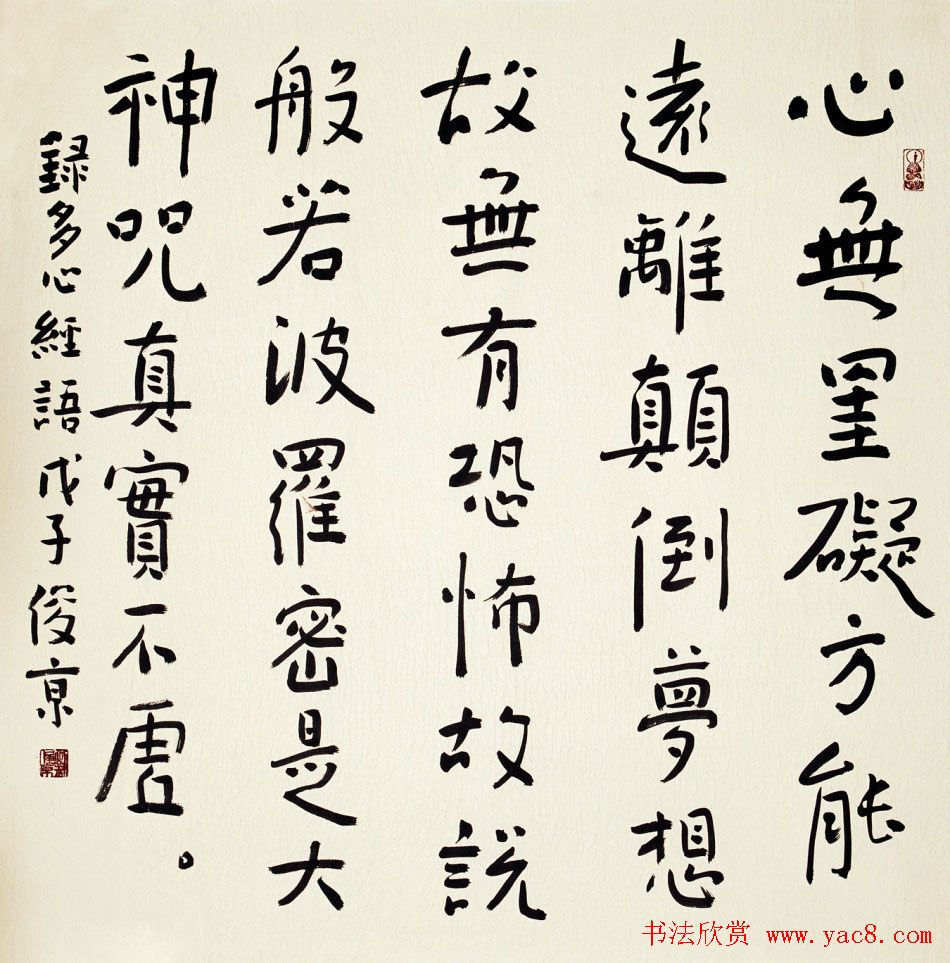 心無罣礙方能
遠離顛倒夢想
故無有恐怖故説
般若波羅密是大
神咒真實不虛。
録多心經語戊子俊京
书法欣赏 www.yac8.com